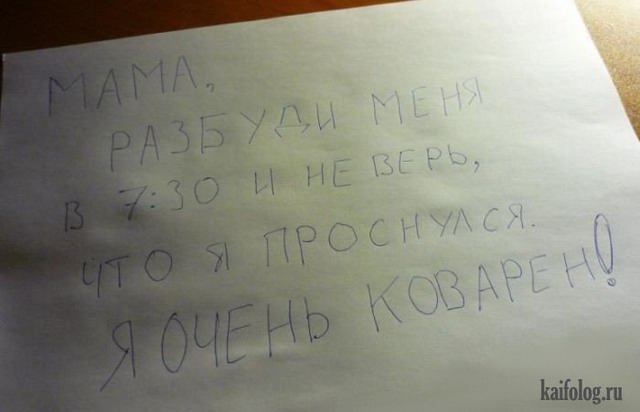 МАМА,
РАЗБУДИ МЕНЯ
В 7:30 И НЕ ВЕРЬ,
ЧТО Я ПРОСНУЛСЯ.
Я ОЧЕНЬ КОВАРЕН!
kaifolog.ru